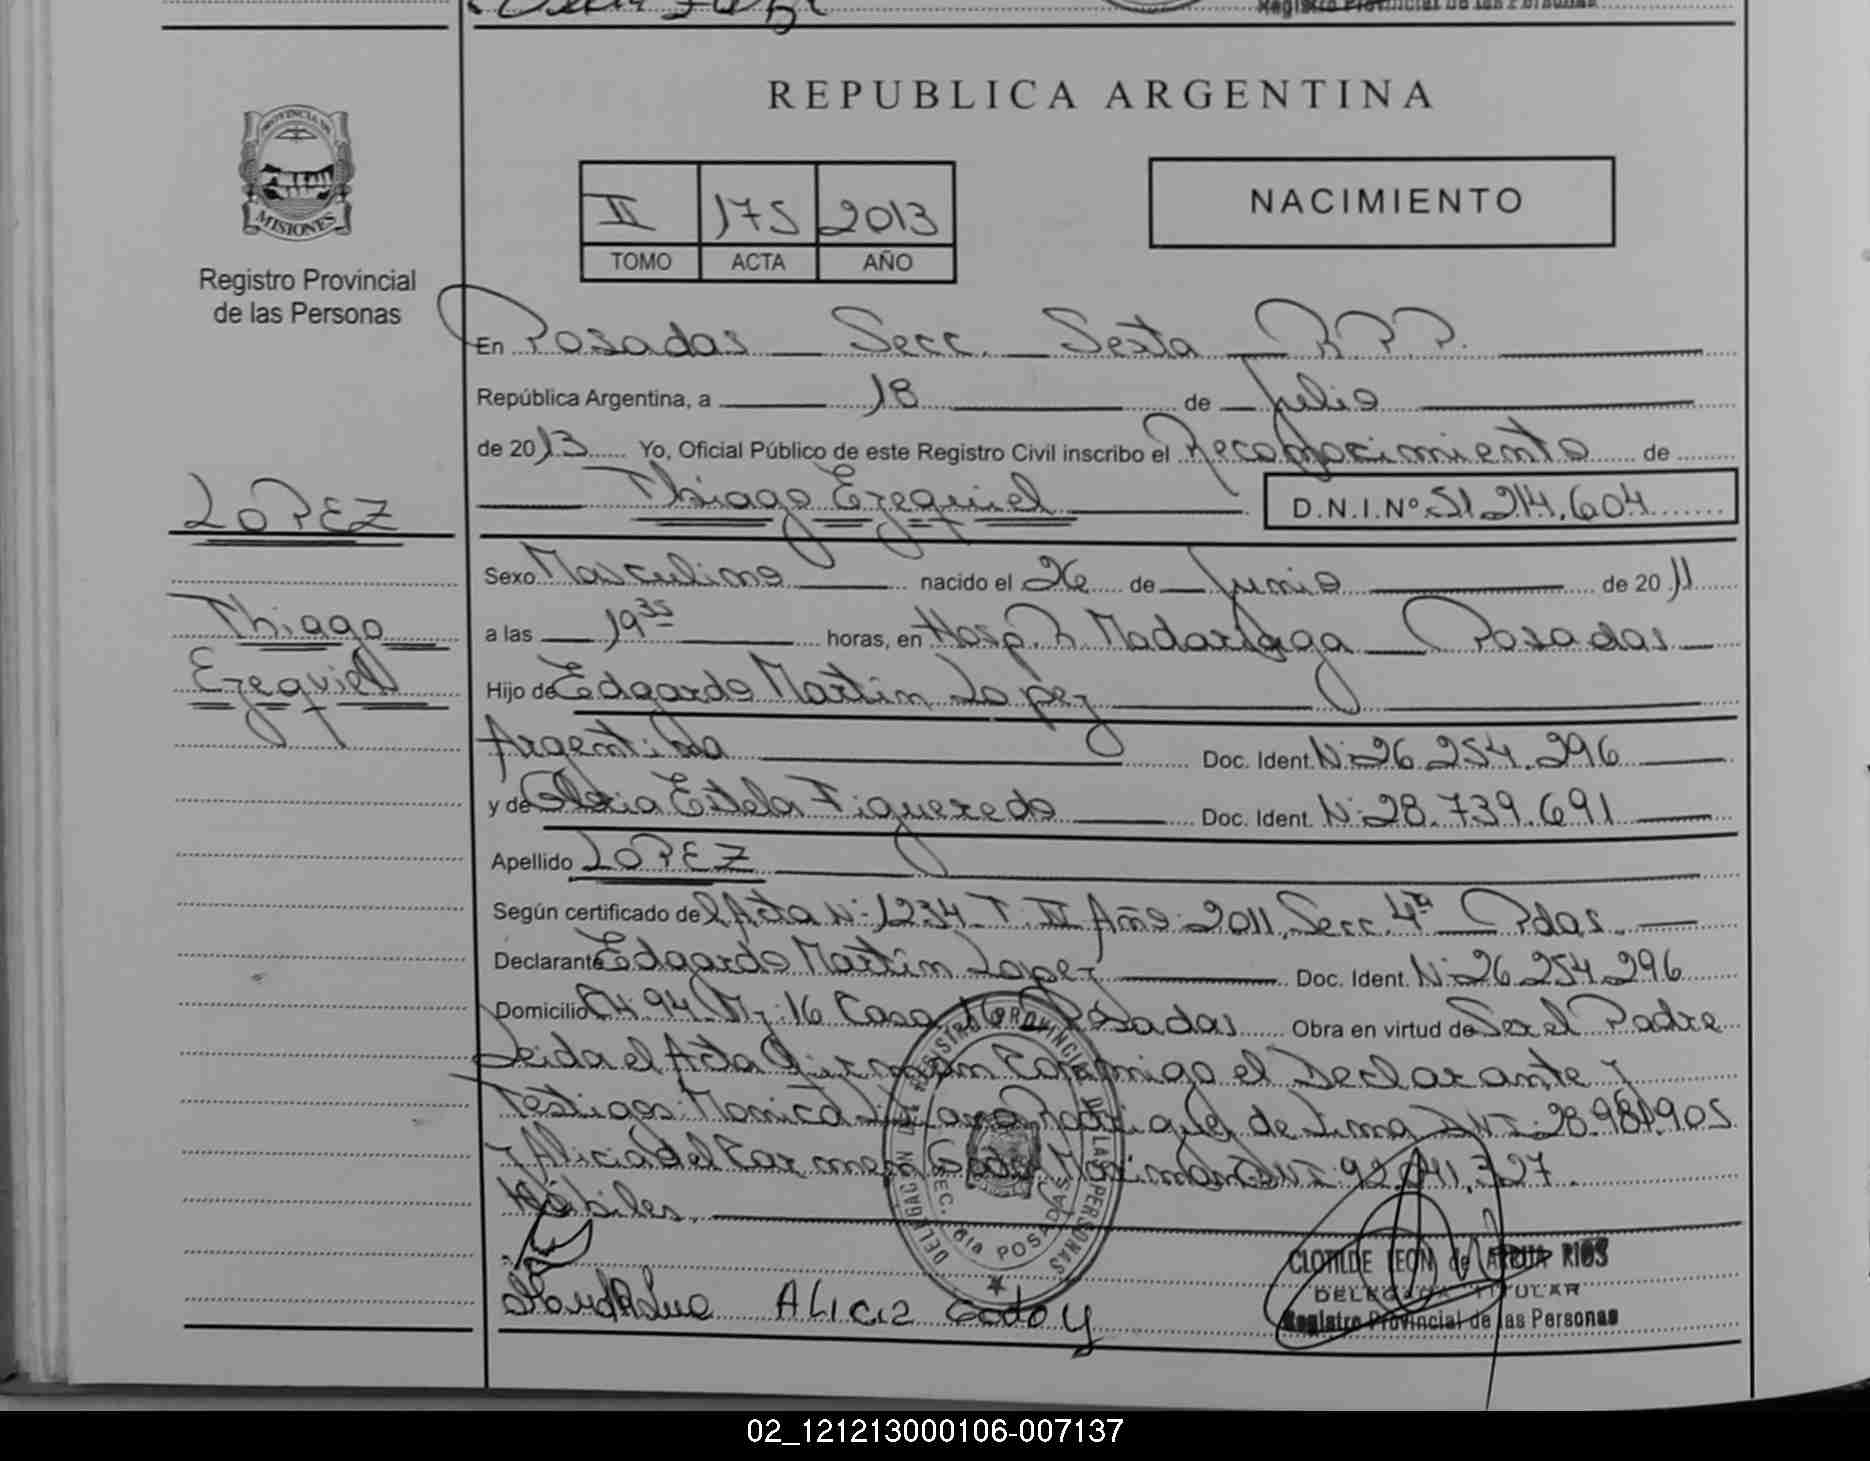 Registro Provincial de las Personas
REPUBLICA ARGENTINA
PROVINCIA DE
MISIONES
Registro Provincial
de las Personas
II 175 2013
TOMO ACTA AÑO
NACIMIENTO
En Posadas Secc. Sexta R.P.P.
República Argentina, a 18 de Julio
de 2013 Yo, Oficial Público de este Registro Civil inscribo el Reconocimiento de
Thiago Ezequiel D.N.I.Nº 51.214.604
LOPEZ
Thiago
Ezequiel
Sexo Masculino nacido el 26 de Junio de 2011
a las 19 35 horas, en Hosp. R. Madariaga Posadas
Hijo de Edgardo Martin Lopez
Argentina Doc. Ident. Nº 26.254.296
y de Gloria Estela Figueredo Doc. Ident. Nº 28.739.691
Apellido LOPEZ
Según certificado del Acta Nº 1234 T. III Año 2011, Secc. 4ª Pdas.
Declarante Edgardo Martin Lopez Doc. Ident. Nº 26.254.296
Domicilio CH 94 Mz: 16 Casa 16 Posadas Obra en virtud de Ser el Padre
Leida el Acta firman Conmigo el Declarante y
Testigos: Monica Rodriguez de Lima DNI: 28.981.905
y Alicia del Carmen Godoy DNI: 92.041.727
Hábiles.
DELEGACION REGISTRO PROVINCIAL DE LAS PERSONAS
SEC. 6ta POSADAS
Alicia Godoy
CLOTILDE LEON de RIOS
DELEGADA TITULAR
Registro Provincial de las Personas
02_121213000106-007137